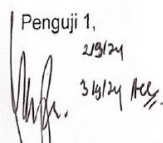 Penguji 1,
2/9/24
3/9/24 Acc